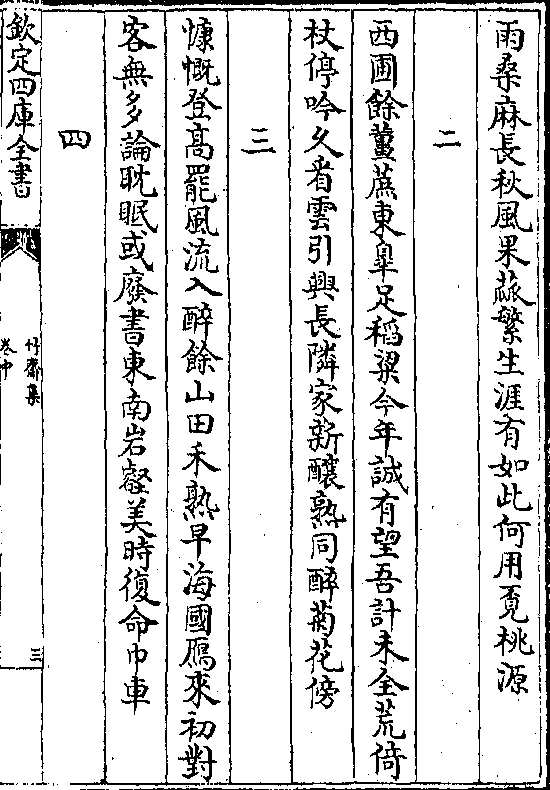 雨桑麻長秋風果蓏繁生涯有如此何用覓桃源
二
西圃餘薑蔗東臯足稻粱今年誠有望吾計未全荒倚
杖停吟久看雲引興長隣家新釀熟同醉菊花傍
三
慷慨登高罷風流入醉餘山田禾熟早海國鴈來初對
客無多論耽眠或廢書東南岩壑美時復命巾車
四
欽定四庫全書
竹齋集
卷中
三